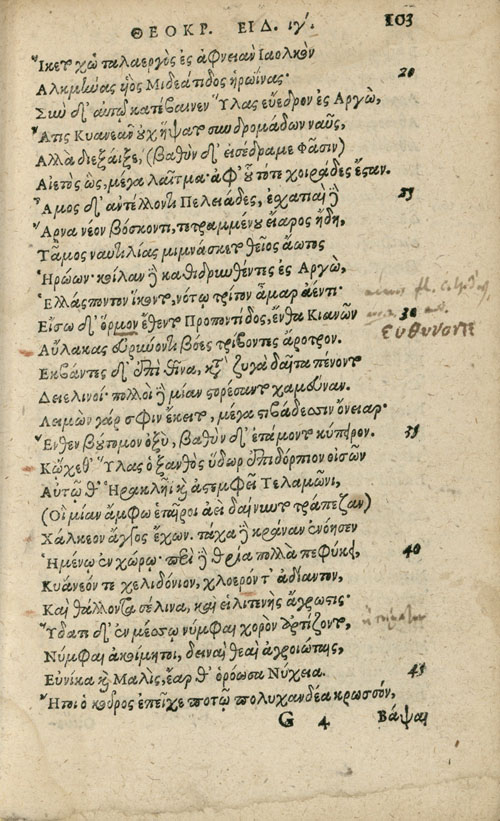 ΘΕΟΚΡ. ΕΙΔ. ιγ΄. 103
Ἵκετο χὠ ταλαεργὸς ἐς ἀφνειὰν Ἰαολκὸν
Ἀλκμήνας ὑὸς Μιδεάτιδος ἡρωΐνας· 20
Σὺν δ' αὐτῷ κατέβαινεν Ὕλας εὔεδρον ἐς Ἀργὼ,
Ἅτις Κυανεᾶν οὐχ ἥψατο συνδρομάδων ναῦς,
Ἀλλὰ διεξάιξε, (βαθὺν δ' εἰσέδραμε Φᾶσιν)
Αἰετὸς ὣς, μέγα λαῖτμα· ἀφ' οὗ τότε χοιράδες ἔσταν.
Ἆμος δ' ἀντέλλοντι Πελειάδες, ἐσχατιαὶ δὲ 25
Ἄρνα νέον βόσκοντι, τετραμμένου εἴαρος ἤδη,
Τᾶμος ναυτιλίας μιμνάσκετο θεῖος ἄωτος
Ἡρώων· κοίλαν δὲ καθιδρυνθέντες ἐς Ἀργὼ,
Ἑλλάσποντον ἵκοντο, νότῳ τρίτον ἆμαρ ἀέντι·
Εἴσω δ' ὅρμον ἔθεντο Προποντίδος, ἔνθα Κιανῶν 30
εὐθύνοντι
Αὔλακας εὐρμύοντι βόες τρίβοντες ἄροτρον.
Ἐκβάντες δ' ἐπὶ θῖνα, κατὰ ζυγὰ δαῖτα πένοντο
Δειελινοί· πολλοὶ δὲ μίαν στορέσαντο χαμεύναν.
Λειμὼν γάρ σφιν ἔκειτο, μέγα στιβάδεσσιν ὄνειαρ·
Ἔνθεν βούτομον ὀξὺ, βαθὺν δ' ἐτάμοντο κύπειρον. 35
Κᾤχεθ' Ὕλας ὁ ξανθὸς ὕδωρ ἐπιδόρπιον οἰσῶν
Αὐτῷ θ' Ἡρακλῆϊ καὶ ἀστεμφεῖ Τελαμῶνι,
(Οἳ μίαν ἄμφω ἑταῖροι ἀεὶ δαίνυντο τράπεζαν)
Χάλκεον ἄγγος ἔχων. τάχα δὲ κράναν ἐνόησεν
Ἡμένῳ ἐν χώρῳ· περὶ δὲ θρία πολλὰ πεφύκει, 40
Κυάνεόν τε χελιδόνιον, χλοερόν τ' ἀδίαντον,
Καὶ θάλλοντα σέλινα, καὶ εἰλιτενὴς ἄγρωστις·
Ὕδατι δ' ἐν μέσσῳ νύμφαι χορὸν ἀρτίζοντο,
Νύμφαι ἀκοίμητοι, δειναὶ θεαὶ ἀγροιώταις,
Εὐνίκα καὶ Μαλὶς, ἔαρ θ' ὁρόωσα Νύχεια. 45
Ἤτοι ὁ κοῦρος ἐπεῖχε ποτῷ πολυχανδέα κρωσσόν,
G 4 Βάψαι